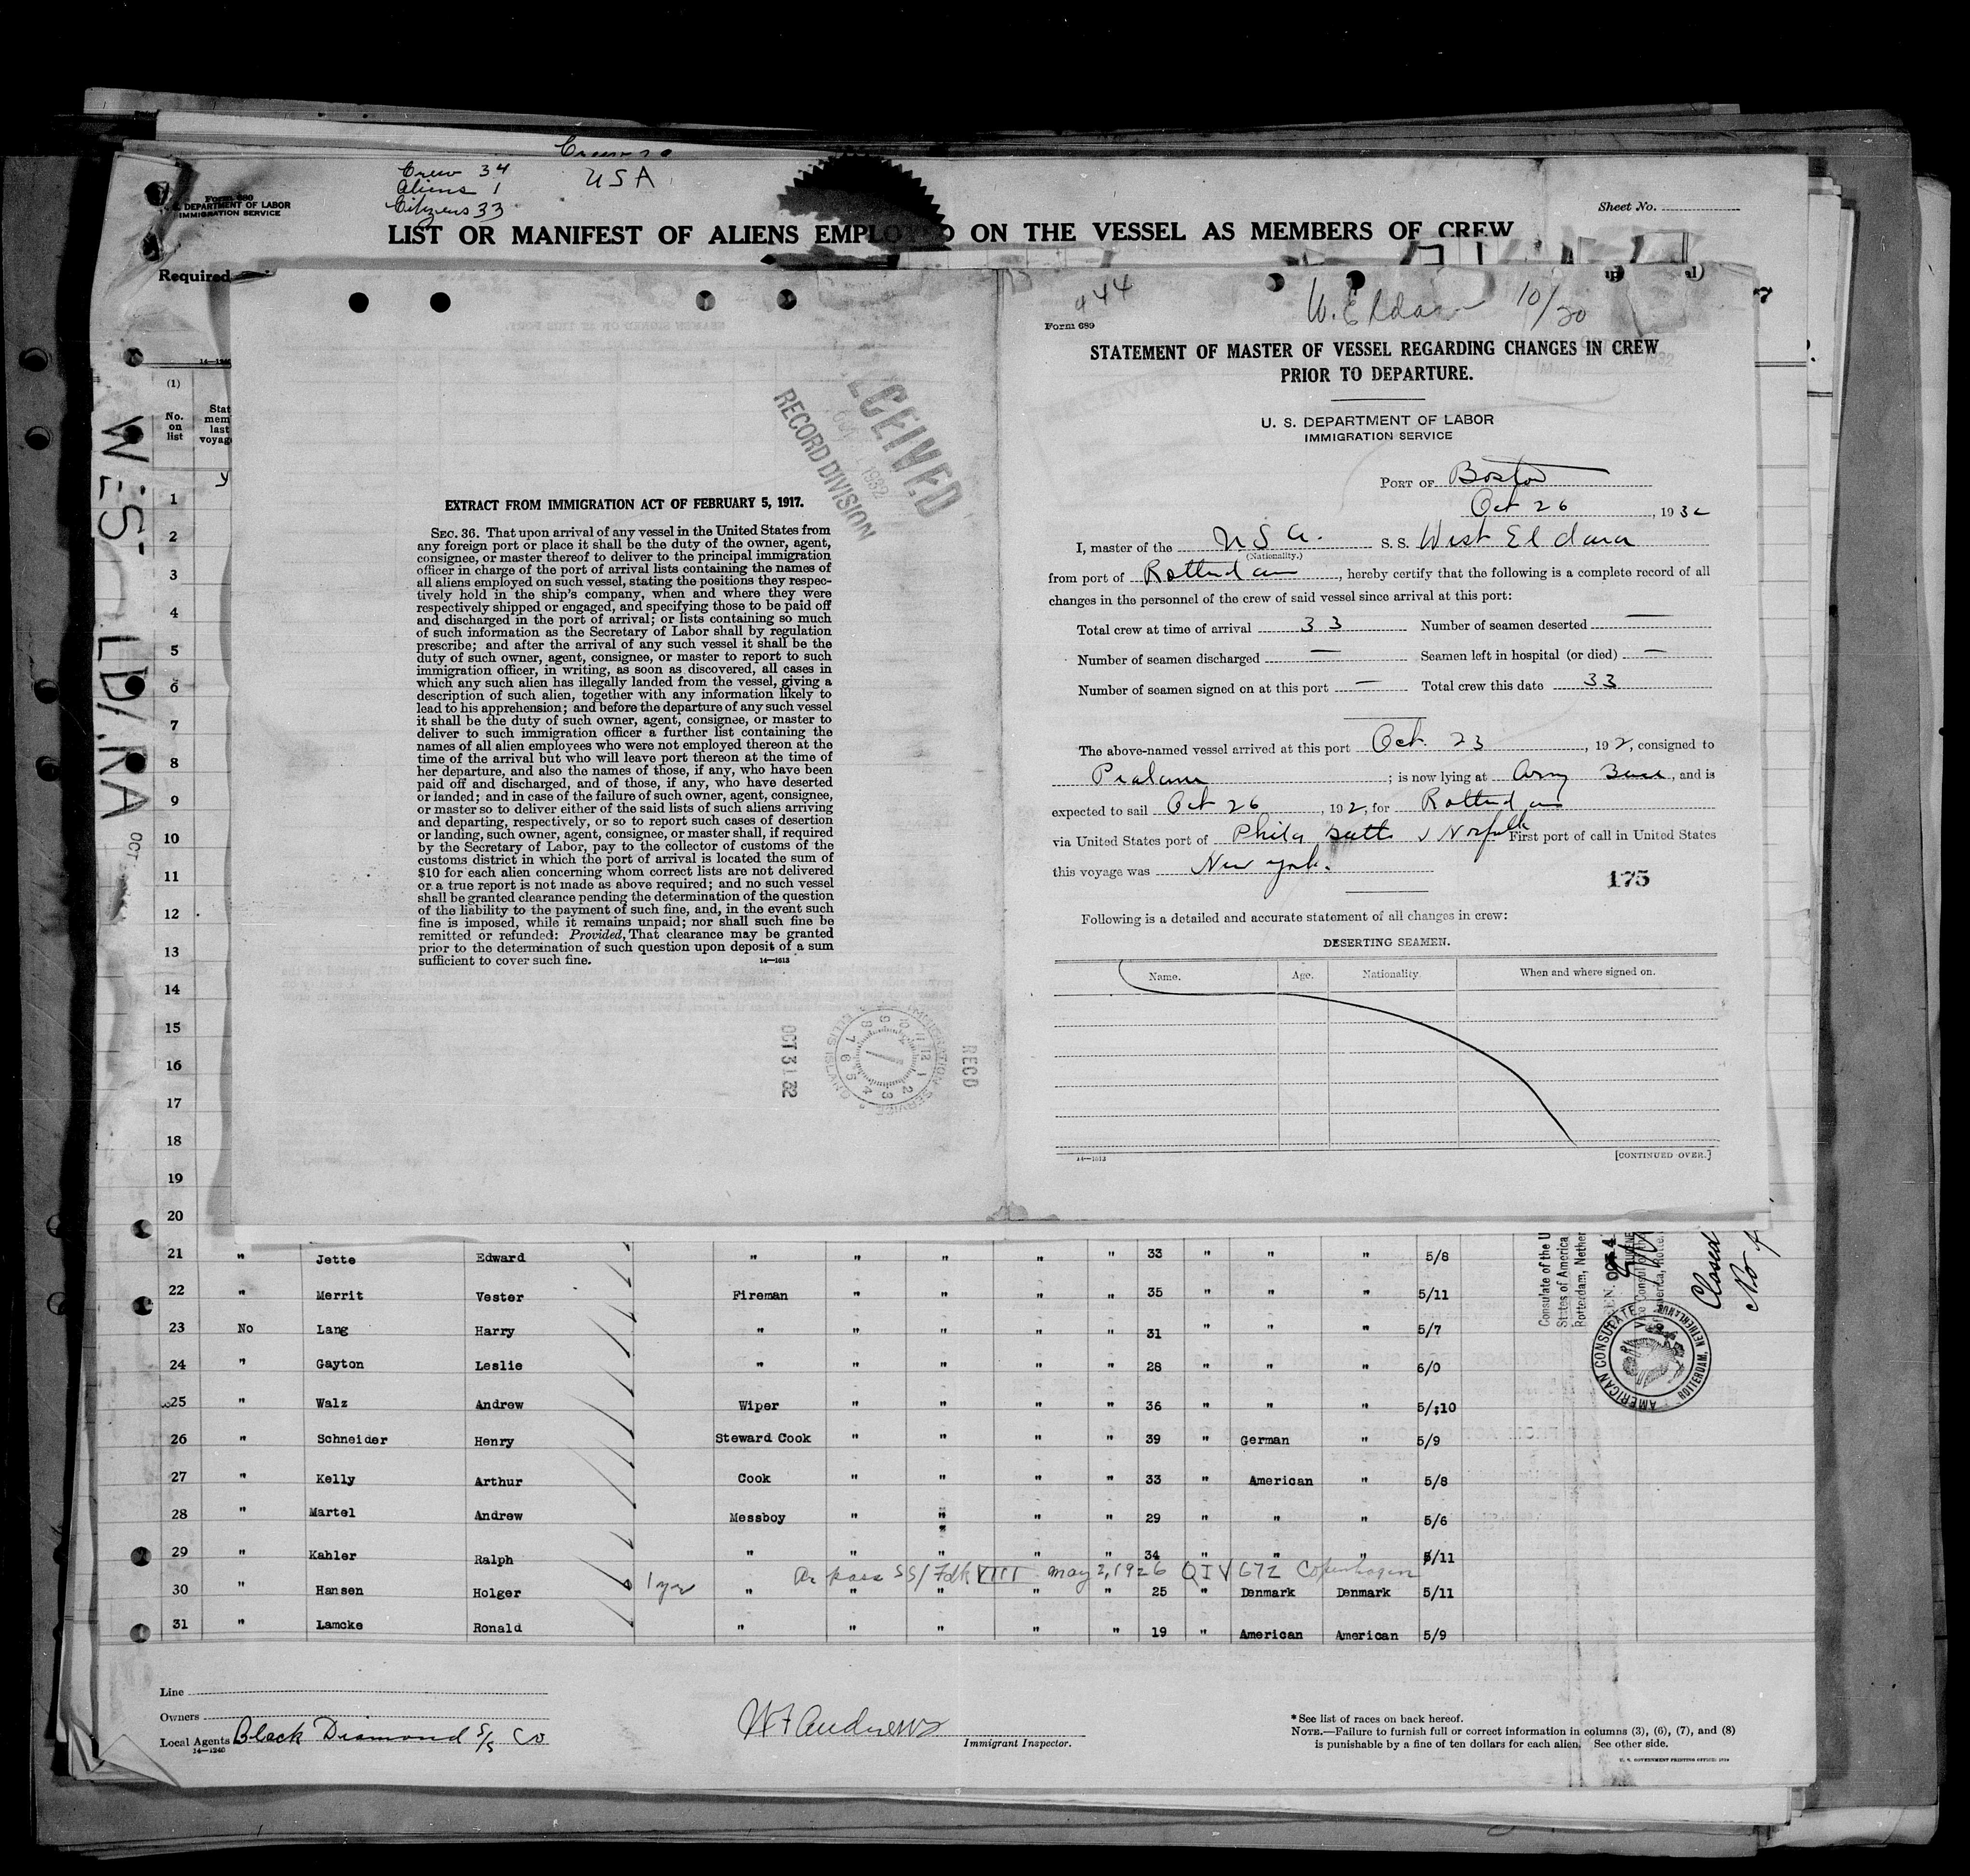 Crew 34
Aliens 1
Citizens 33
USA
Form 680
DEPARTMENT OF LABOR
IMMIGRATION SERVICE
Sheet No.
LIST OR MANIFEST OF ALIENS EMPLO D ON THE VESSEL AS MEMBERS OF CREW
Required
(1)
No. on list
WES LD/.RA
OCT
1
2
3
4
5
6
7
8
9
10
11
12
13
14
15
16
17
18
19
20
RECEIVED
1932
RECORD DIVISION
EXTRACT FROM IMMIGRATION ACT OF FEBRUARY 5, 1917.
SEC. 36. That upon arrival of any vessel in the United States from
any foreign port or place it shall be the duty of the owner, agent,
consignee, or master thereof to deliver to the principal immigration
officer in charge of the port of arrival lists containing the names of
all aliens employed on such vessel, stating the positions they respec-
tively hold in the ship's company, when and where they were
respectively shipped or engaged, and specifying those to be paid off
and discharged in the port of arrival; or lists containing so much
of such information as the Secretary of Labor shall by regulation
prescribe; and after the arrival of any such vessel it shall be the
duty of such owner, agent, consignee, or master to report to such
immigration officer, in writing, as soon as discovered, all cases in
which any such alien has illegally landed from the vessel, giving a
description of such alien, together with any information likely to
lead to his apprehension; and before the departure of any such vessel
it shall be the duty of such owner, agent, consignee, or master to
deliver to such immigration officer a further list containing the
names of all alien employees who were not employed thereon at the
time of the arrival but who will leave port thereon at the time of
her departure, and also the names of those, if any, who have been
paid off and discharged, and of those, if any, who have deserted
or landed; and in case of the failure of such owner, agent, consignee,
or master so to deliver either of the said lists of such aliens arriving
and departing, respectively, or so to report such cases of desertion
or landing, such owner, agent, consignee, or master shall, if required
by the Secretary of Labor, pay to the collector of customs of the
customs district in which the port of arrival is located the sum of
$10 for each alien concerning whom correct lists are not delivered
or a true report is not made as above required; and no such vessel
shall be granted clearance pending the determination of the question
of the liability to the payment of such fine, and, in the event such
fine is imposed, while it remains unpaid; nor shall such fine be
remitted or refunded: Provided, That clearance may be granted
prior to the determination of such question upon deposit of a sum
sufficient to cover such fine.
14—1613
OCT 31 32
IMMIGRATION SERVICE ELLIS ISLAND
RECD
444
W. Eldara 10/20
Form 689
STATEMENT OF MASTER OF VESSEL REGARDING CHANGES IN CREW
PRIOR TO DEPARTURE.
U. S. DEPARTMENT OF LABOR
IMMIGRATION SERVICE
PORT OF Boston
Oct 26, 1932
I, master of the U S A. S. S. West Eldara
(Nationality.)
from port of Rotterdam, hereby certify that the following is a complete record of all
changes in the personnel of the crew of said vessel since arrival at this port:
Total crew at time of arrival 33 Number of seamen deserted —
Number of seamen discharged — Seamen left in hospital (or died) —
Number of seamen signed on at this port — Total crew this date 33
The above-named vessel arrived at this port Oct. 23, 192, consigned to
; is now lying at Army Base, and is
expected to sail Oct 26, 192, for Rotterdam
via United States port of Phila Balto & Norfolk First port of call in United States
this voyage was New York.
175
Following is a detailed and accurate statement of all changes in crew:
DESERTING SEAMEN.
Name. Age. Nationality. When and where signed on.
14—1613
[CONTINUED OVER.]
21 " Jette Edward " " " " " 33 " " " 5/8
22 " Merrit Vester Fireman " " " " 35 " " " 5/11
23 No Lang Harry " " " " " 31 " " " 5/7
24 " Gayton Leslie " " " " " 28 " " " 6/0
25 " Walz Andrew Wiper " " " " 36 " " " 5/10
26 " Schneider Henry Steward Cook " " " " 39 " German " 5/9
27 " Kelly Arthur Cook " " " " 33 " American " 5/8
28 " Martel Andrew Messboy " " " " 29 " " " 5/6
29 " Kahler Ralph " " " " " 34 " " " 5/11
May 2, 1926 Copenhagen
30 " Hansen Holger 1 yr " " " " " 25 " Denmark Denmark 5/11
31 " Lamcke Ronald " " " " " 19 " American American 5/9
Consulate of the U
States of America
Rotterdam, Nether
AMERICAN CONSULATE
ROTTERDAM, NETHERLANDS
Closed
No
Line
Owners
Local Agents Black Diamond S/S Co
14—1240
W F Andrews
Immigrant Inspector.
* See list of races on back hereof.
NOTE.—Failure to furnish full or correct information in columns (3), (6), (7), and (8)
is punishable by a fine of ten dollars for each alien. See other side.
U. S. GOVERNMENT PRINTING OFFICE